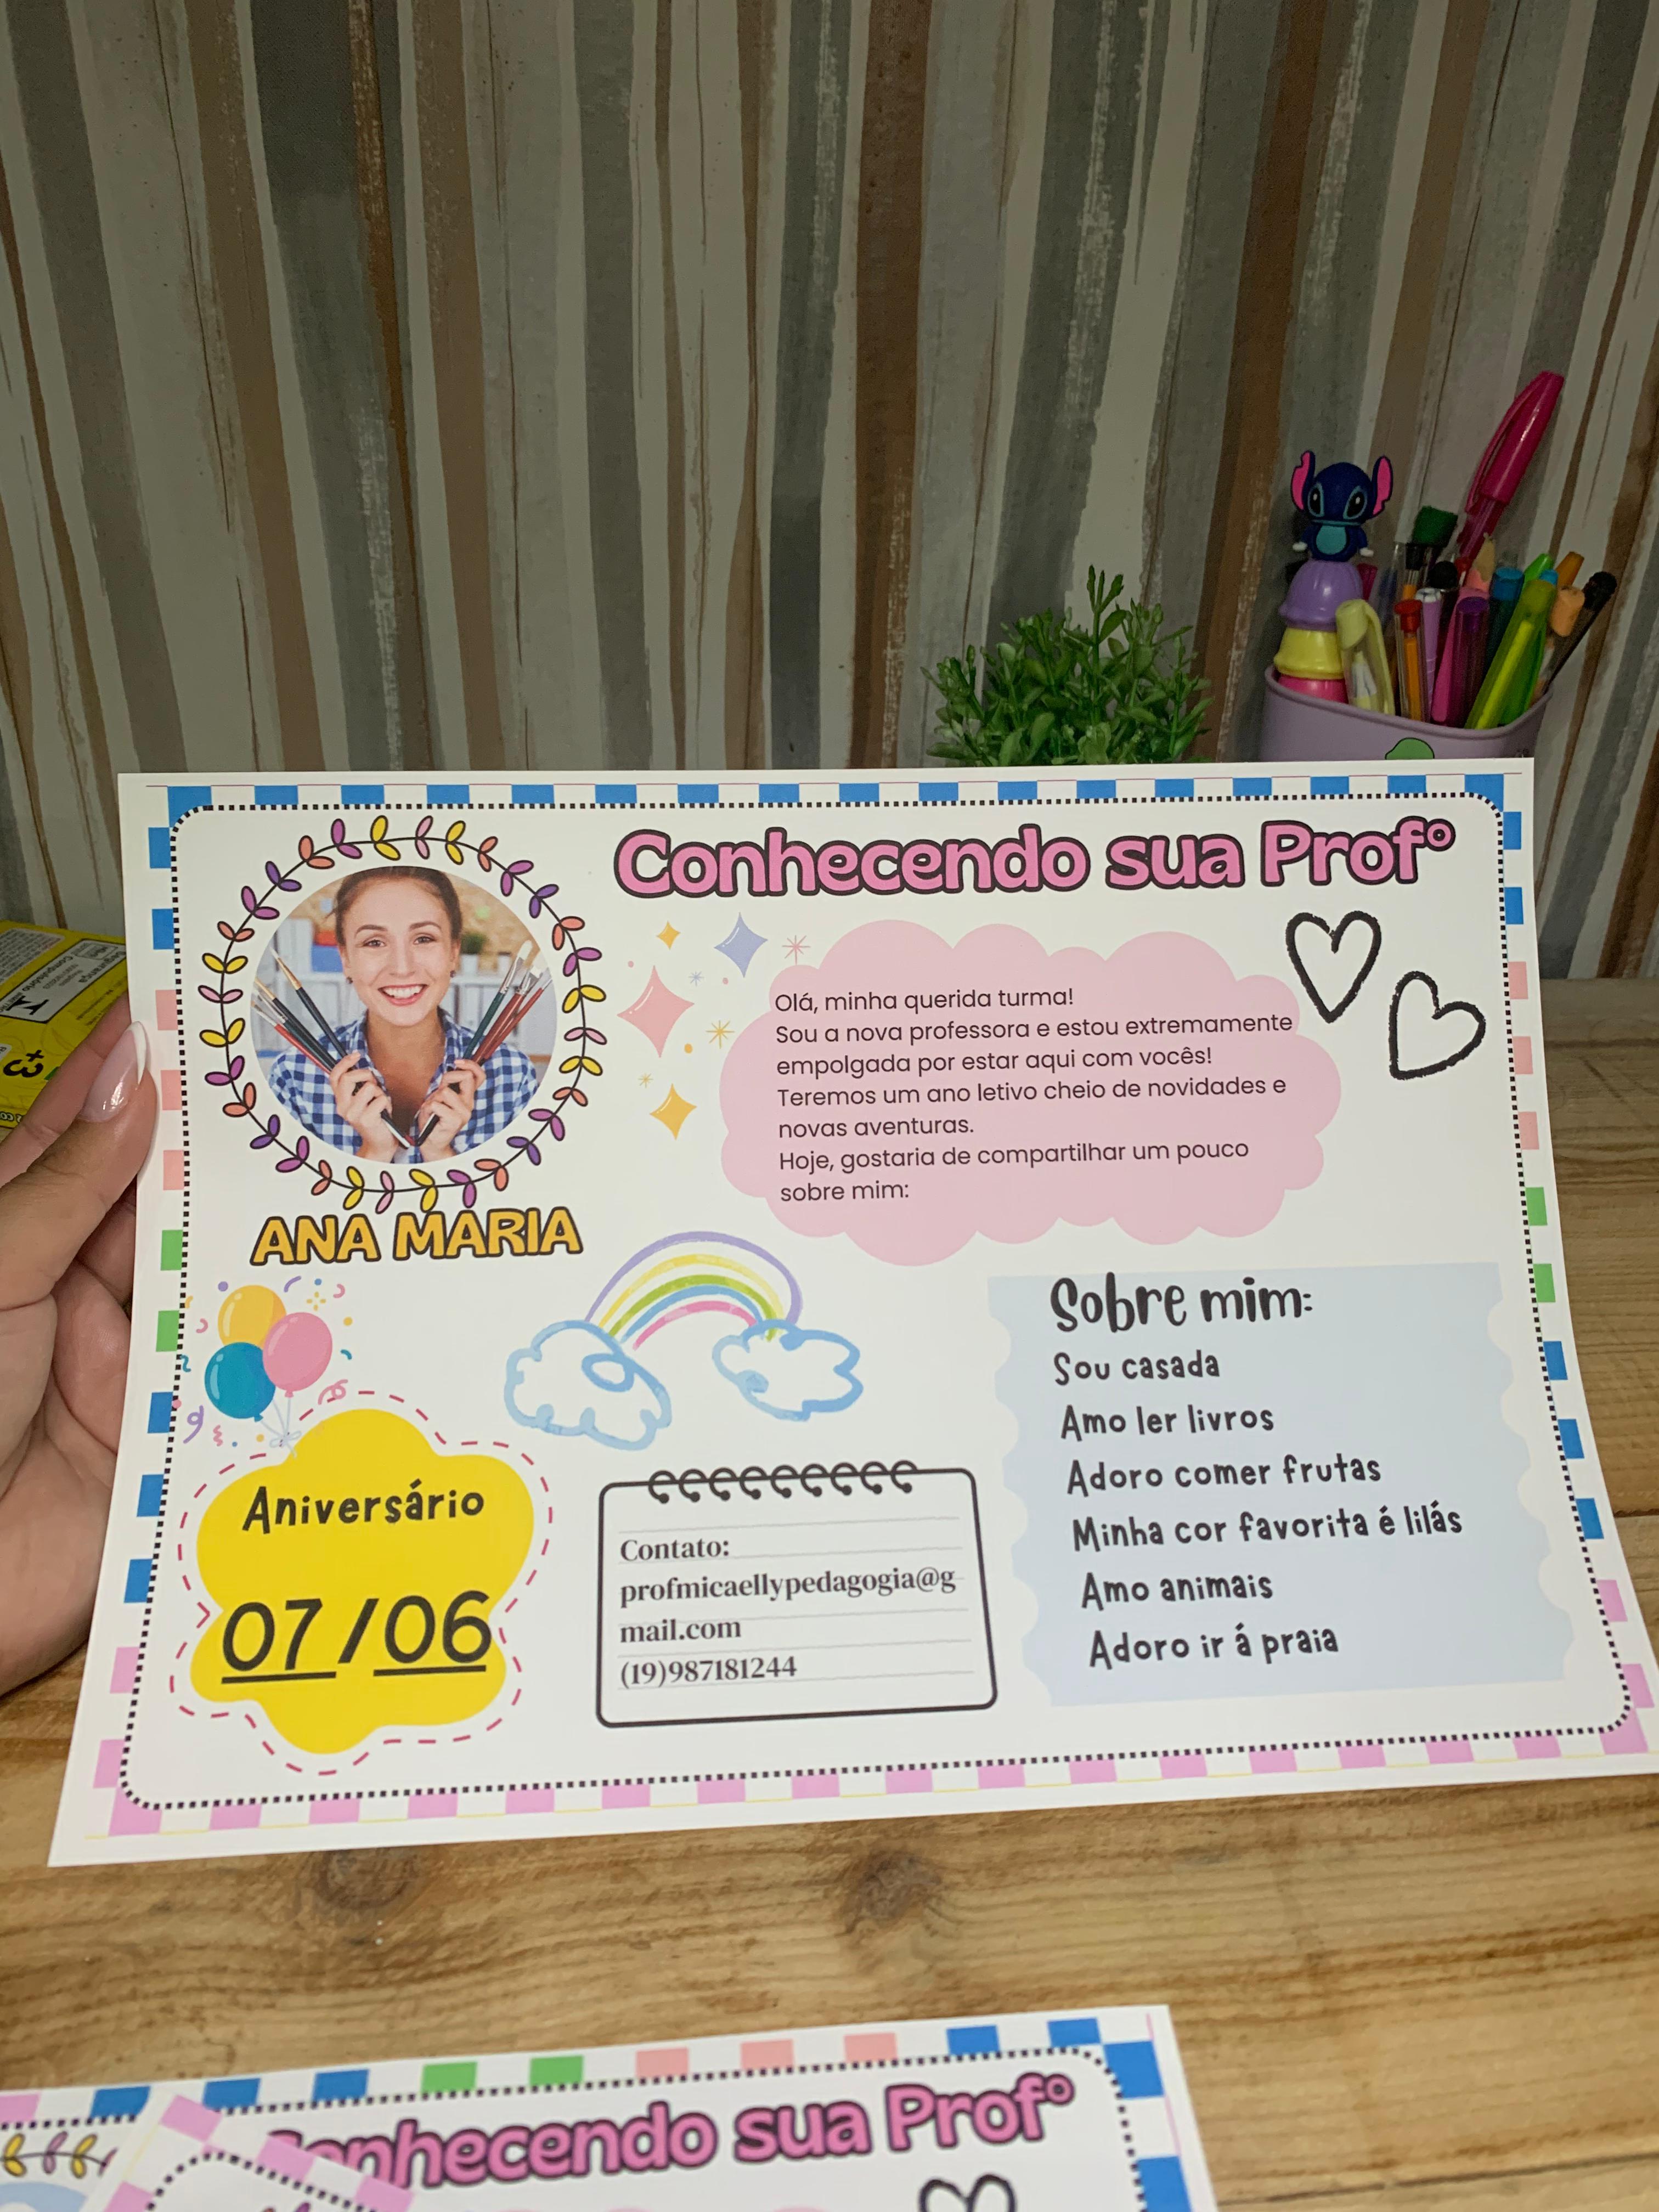 Conhecendo sua Profº
Olá, minha querida turma!
Sou a nova professora e estou extremamente
empolgada por estar aqui com vocês!
Teremos um ano letivo cheio de novidades e
novas aventuras.
Hoje, gostaria de compartilhar um pouco
sobre mim:
ANA MARIA
Aniversário
07/06
Contato:
profmicaellypedagogia@g
mail.com
(19)987181244
Sobre mim:
Sou casada
Amo ler livros
Adoro comer frutas
Minha cor favorita é lilás
Amo animais
Adoro ir á praia
Conhecendo sua Profº